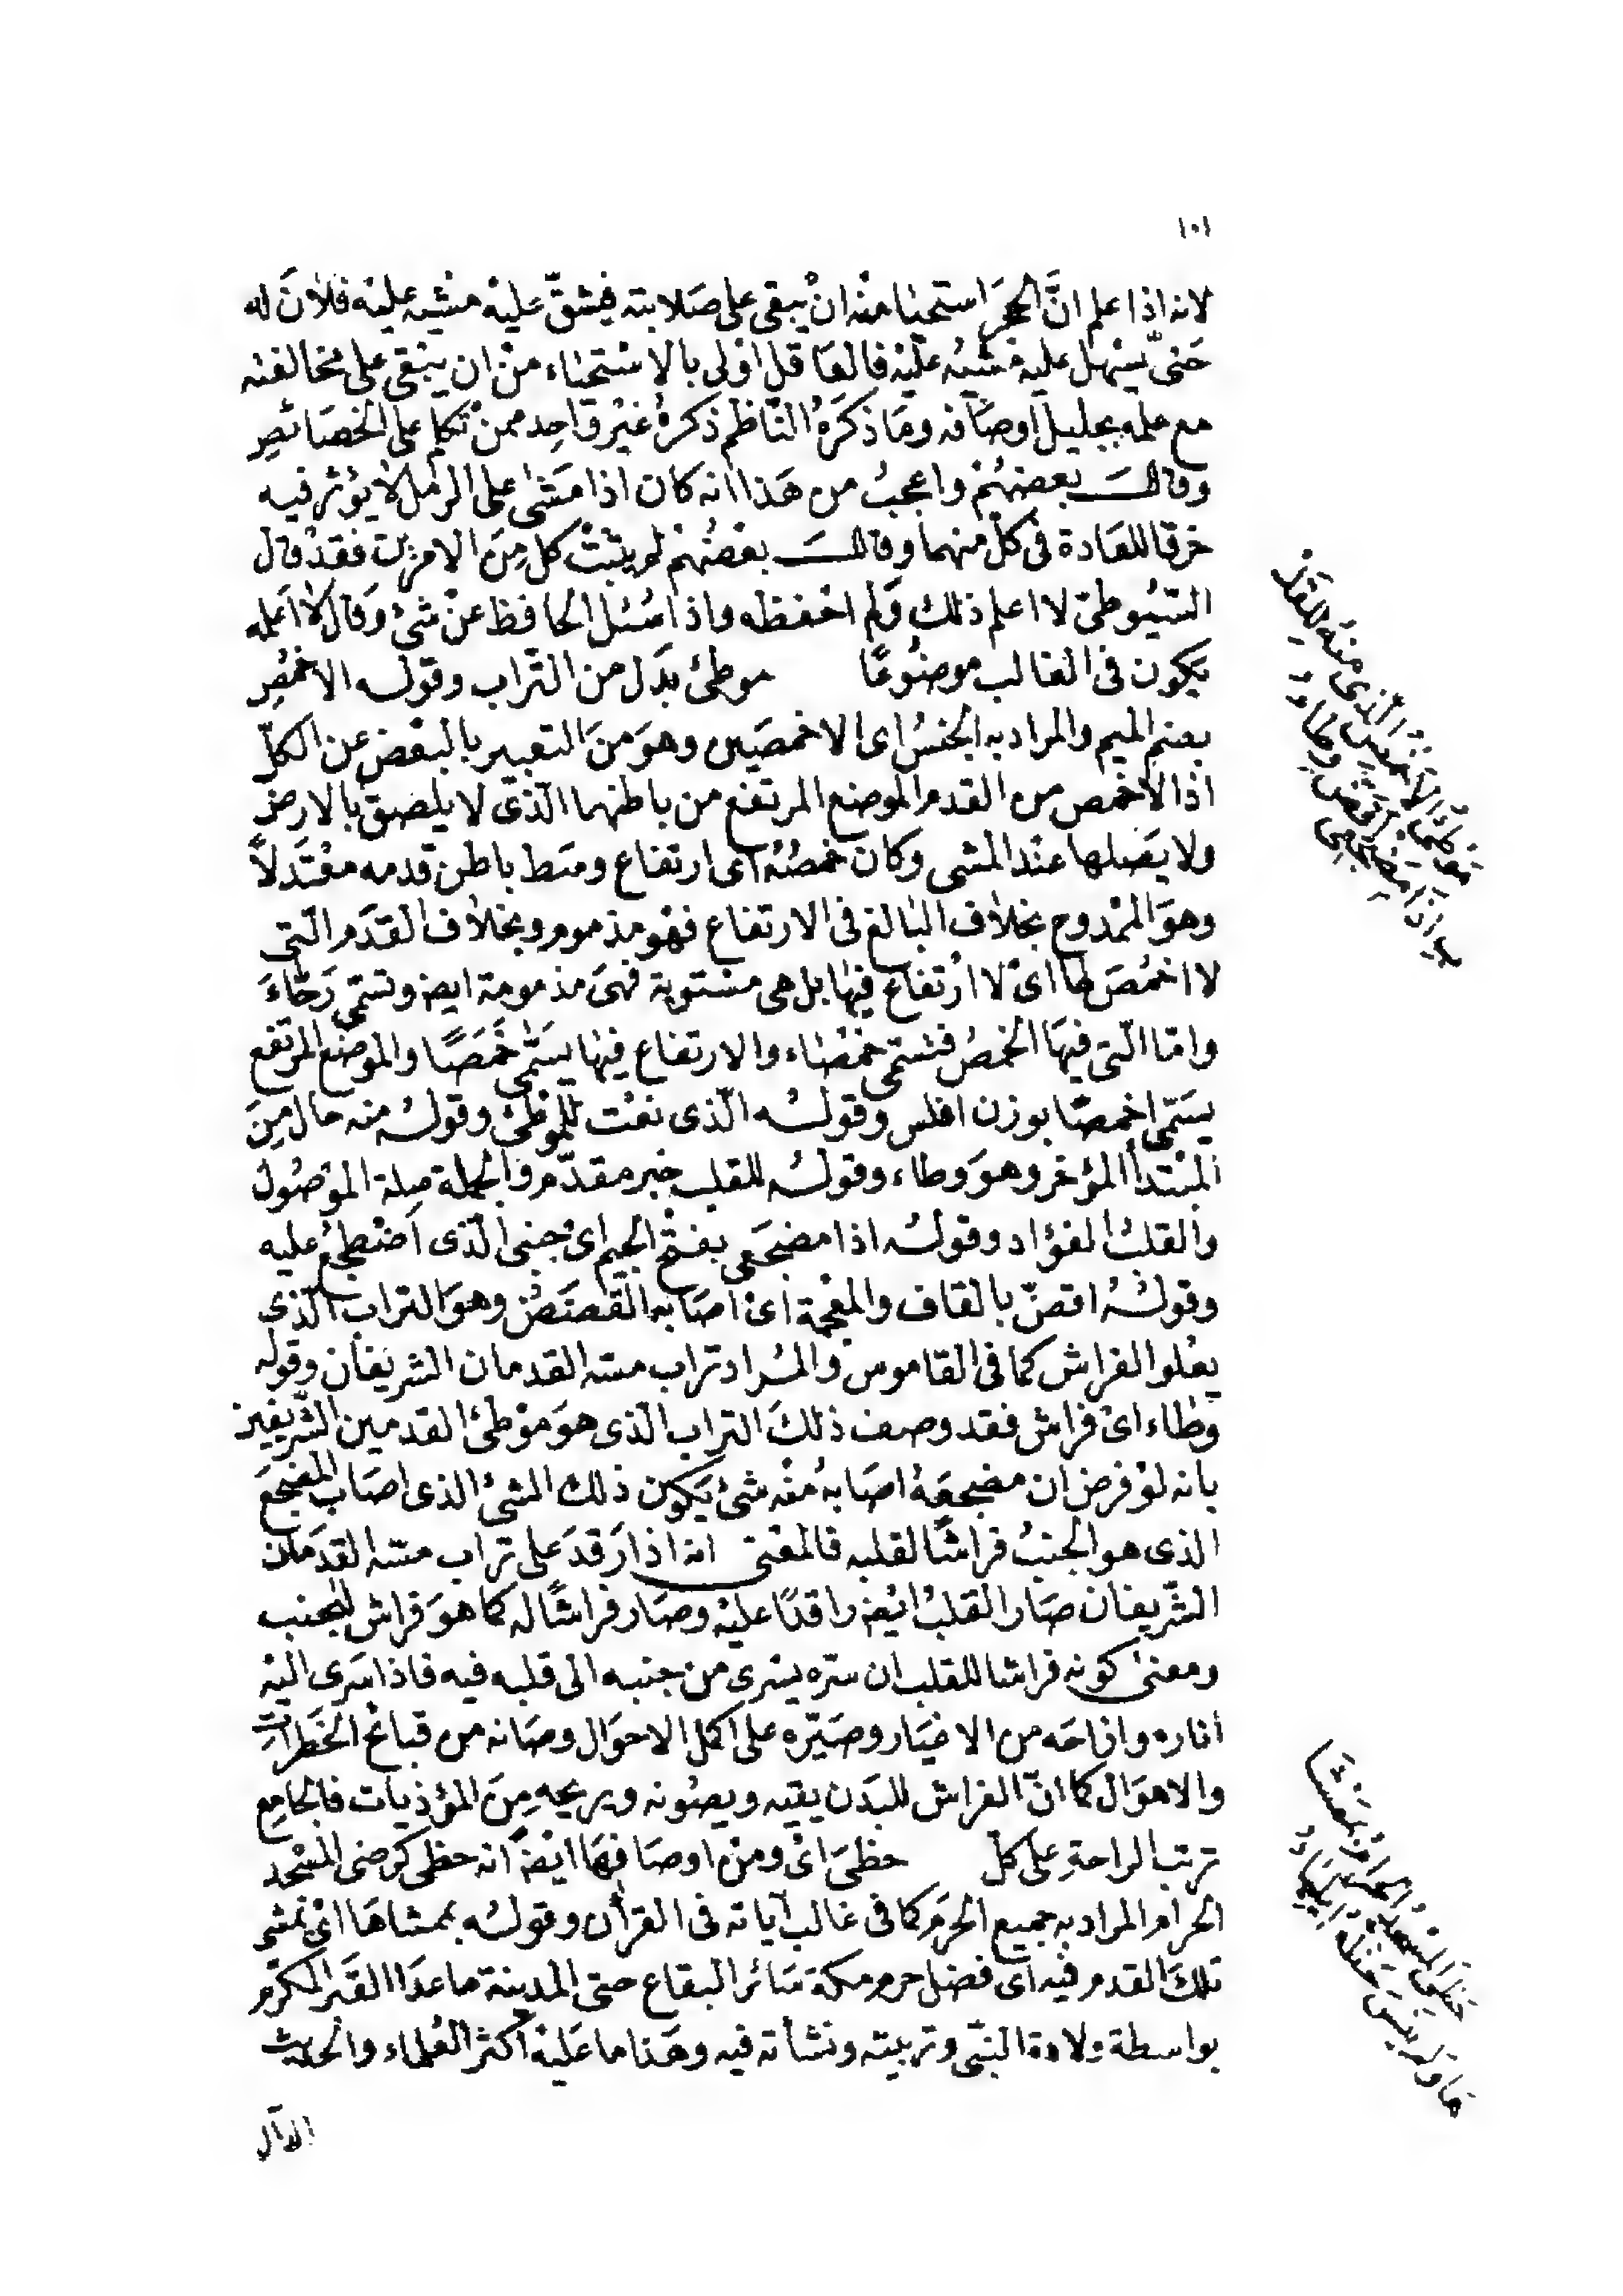 ١٠١
لانه اذا علم انَّ الحجَرَ استحيا منْه انْ يبقى على صَلابته فيشقّ عليْه مشيه عليْه فلانَ له
حَتىّ يسْهل عليه مشيُه عليْه فالعَاقل اوْلى بالاسْتحيَاء منْ ان يبْقى على مخالفته
مع علمه بجليل اوصَافه ومَا ذكرَهُ النّاظم ذكرهُ غيْر وَاحِد ممنْ تكلم على الخصَائصِ
وقالَ بعضهُمْ واعجبُ من هَذا انه كان اذا مَشى على الرمْل لا يؤثر فيه
خرقا للعَادة فى كلّ منهما وقالَ بعْضهُمْ لم يثبتْ كل مِنَ الامرين فقدْ قال
السّيُوطىّ لا اعلم ذلك وَلم احْفظه واذا سُئل الحافظ عنْ شئ وَقال لا اعلمه
يكون فى الغالب موضُوعًا موطئ بدَل من التّراب وقوله الاخمُصِ
بضم الميم والمراد به الجنسُ اى الاخمصَين وهوَ منَ التعبير بالبعْض عن الكلّ
اذ الاخمص من القدم الموضع المرتفع من باطنها الّذى لا يلصق بالارض
ولا يصَلها عنْد المشى وكان خمصُهُ اى ارتفاع وسَط باطن قدمه معْتدَلاً
وهوَ الممْدوح بخلاف البَالغ فى الارتفاع فهْو مذموم وبخلاف القدَم الّتى
لا اخمُصَ لها اىْ لا ارْتفاع فيها بل هى مسْتوية فهىَ مذمومة ايض وتسَمى رَحّاءَ
وامّا الّتى فيهَا الخمصُ فتسَمى خمْصَاء والارتفاع فيها يسَمّى خَمَصًا والموضْع المرتفع
يسَمّى اخمصًا بوزن افلس وقولُه الّذى نعْت للموْطئ وقولُه منه حال مِنَ
المبْتدأ المؤخر وهوَ وطاء وقولُه للقلب خبر مقدّم والجملة صلة الموْصُول
والقلبُ الفؤاد وقولُه اذا مضجَعى بفتْح الجيم اىْ جنبى الّذى اضْطجعُ عليه
وقولُهُ اقضّ بالقاف والمعْجمة اىْ اصَابه القَضَضُ وهوَ التراب الّذى
يعْلوا الفراش كما فى القاموس والمُراد تراب مسّه القدمان الشريفان وقوله
وطاء اىْ فراش فقد وصف ذلكَ التراب الّذى هوَ موْطئ القدمين الشّريفين
بانه لوْ فرض ان مضجعَهُ اصَابهُ منْه شئ يَكون ذلك الشئ الذى اصَاب المضجعَ
الذى هو الجنبُ فراشًا لقلبه فالمعْنى انه اذا رَقدَ على تراب مسّه القدمَان
الشّريفان صَار القلبُ ايْضا راقدًا عليْه وصَار فراشًا له كما هوَ فراش للجنب
ومعنى كونه فراشا للقلب ان سرّه يسْرى من جنبه الى قلبه فيه فاذا سَرى اليْه
اناره وازاحَه من الاغيَار وصَيّره على اكمل الاحوَال وصَانه من قبائح الخَطرَات
والاهوَال كما انّ الفراش للبَدن يقيه ويصُونه ويريحه مِنَ المؤذيات فالجامع
ترتب الراحةِ على كلّ حظىَ اىْ ومنْ اوصَافهَا ايْضا انه حظى كرضى المسْجد
الحرام المراد به جميع الحرَم كما فى غالب آياته فى القرأن وقولُه بممشاهَا اىْ تمشى
تلكَ القدم فيْه اى فضل حرم مكة سَائر البقاع حتى المدينة ما عدَا القبْر المكرّم
بواسطة ولادة النّبى وتربيته ونشأته فيه وهَذا ما عليْه اكثر العُلماء والحديث
الدّال
مَوْطِئُ الاَخْمُصِ الَّذِى مِنْهُ لِلقَلْ
بِ اِذَا مَضْجَعِى اَقَضَّ وِطَاءُ
حَظِىَ المَسْجِدُ الحَرَامُ بِمَمْشَا
هَا وَلَمْ يَنْسَ حَظَّهُ اِيلِيَاءُ